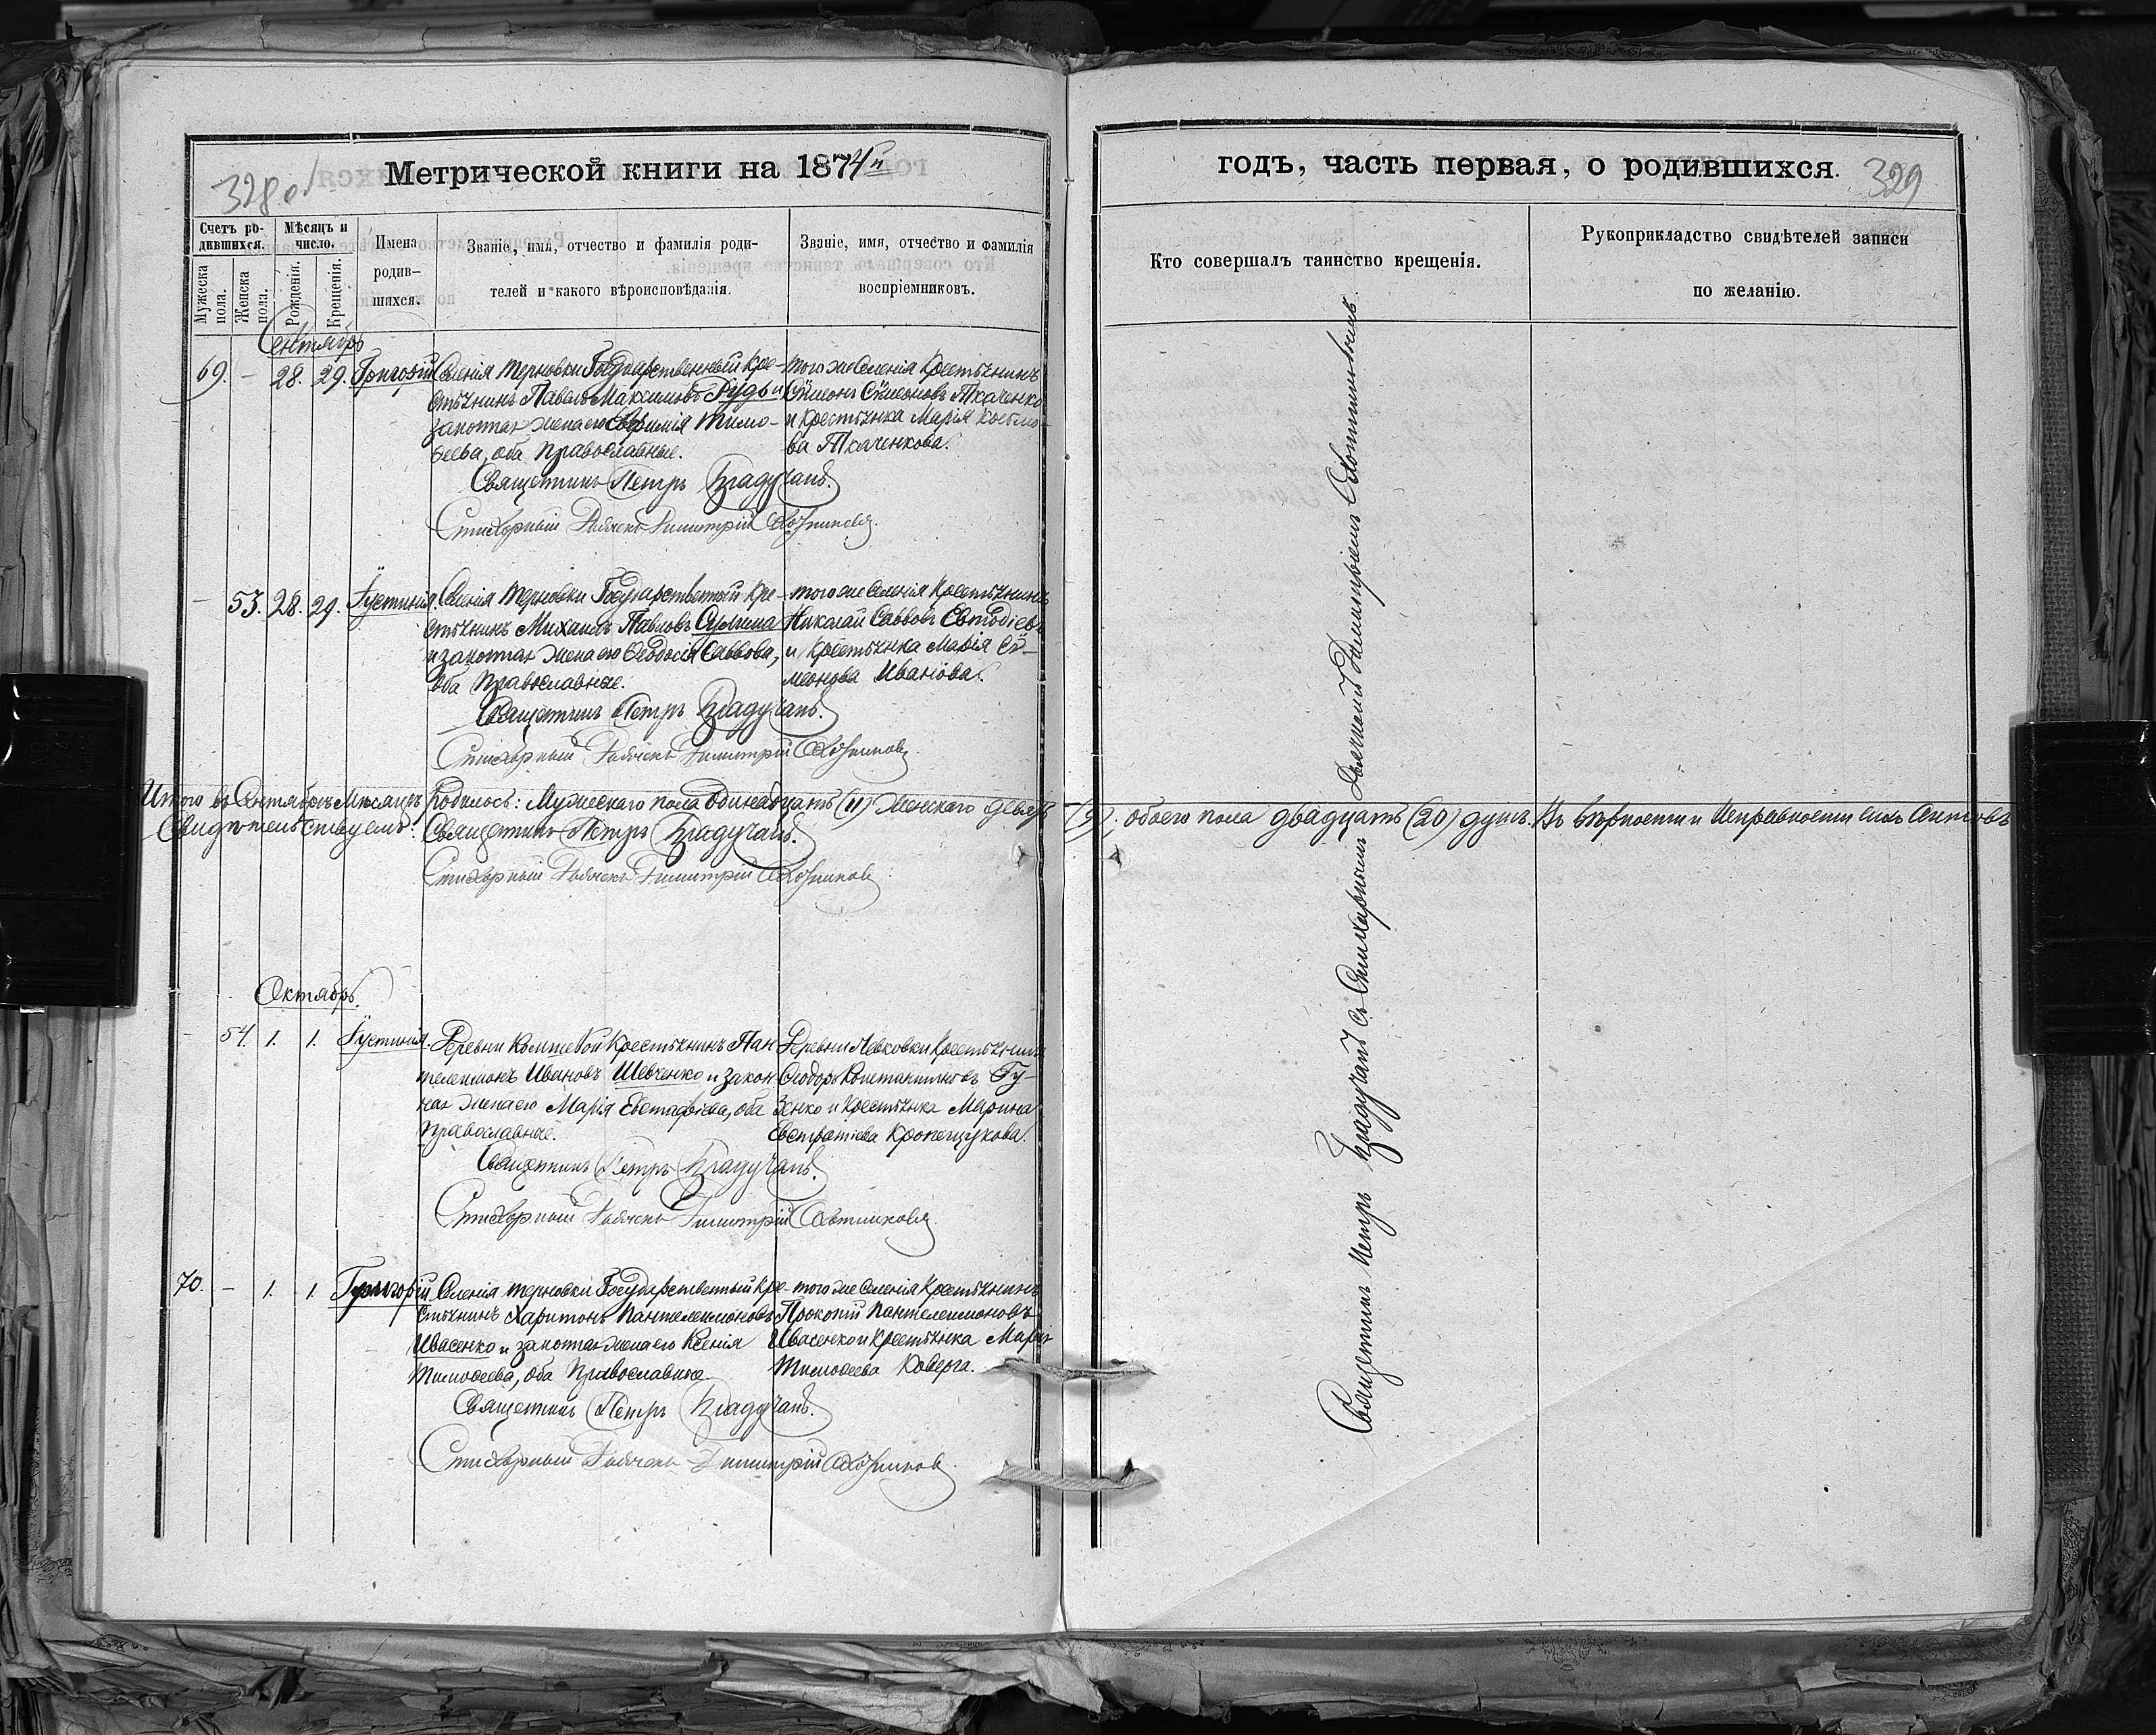 328 об
Метрической книги на 1874й
Счетъ ро-
дившихся.
Мужеска
пола.
Женска
пола.
Мѣсяцъ и
число.
Рожденія.
Крещенія.
Имена
родив-
шихся.
Званіе, имя, отчество и фамилія роди-
телей и какого вѣроисповѣданія.
Званіе, имя, отчество и фамилія
воспріемниковъ.
Сентябрь
69. - 28. 29. Григорій
Селенія Терновки Государственный Кре-
стьянинъ Павелъ Максимовъ Рудь и
законная жена его Евфимія Тимо-
ѳеева, оба Православные.
того же Селенія Крестьянинъ
Сѵмеонъ Сѵмеоновъ Ткаченко
и Крестьянка Марія
ва Ткаченкова.
Священникъ Петръ
Стихарный Дьячекъ Димитрій
- 53. 28. 29. Іустинія.
Селенія Терновки Государственный Кре-
стьянинъ Михаилъ Павловъ Сулима
и законная жена его Ѳеодосія Саввова,
оба Православные.
того же Селенія Крестьянинъ
Николай Саввовъ Евтодіевъ
и Крестьянка Марія Сѵ-
меонова Иванова.
Священникъ Петръ
Стихарный Дьячекъ Димитрій
Итого въ Сентябрѣ Мѣсяцѣ Родилось: Мужескаго пола одинадцать (11) женскаго девять
Свидѣтельствуемъ: Священникъ Петръ
Стихарный Дьячекъ Димитрій
Октябрь.
- 54. 1. 1. Іустинія.
Деревни Крестьянинъ Пан
телеимонъ Ивановъ Шевченко и закон
ная жена его Марія Евстафіева, оба
Православные.
Деревни Левковки Крестьянинъ
Ѳеодоръ Константиновъ Гу-
зенко и Крестьянка Марина
Евстратіева
Священникъ Петръ
Стихарный Дьячекъ Димитрій
70. - 1. 1. Григорій
Селенія Терновки Государственный Кре-
стьянинъ Харитонъ Пантелеимоновъ
Ивасенко и законная жена его Ксенія
Тимоѳеева, оба Православные.
того же Селенія Крестьянинъ
Прокопій Пантелеимоновъ
Ивасенко и Крестьянка Марія
Тимоѳеева Коверга.
Священникъ Петръ
Стихарный Дьячекъ Димитрій
годъ, часть первая, о родившихся.
329
Кто совершалъ таинство крещенія.
Рукоприкладство свидѣтелей записи
по желанію.
(9). обоего пола двадцать (20) душъ. Въ вѣрности и Исправности сихъ Актовъ
Священникъ Петръ съ Стихарнымъ Дьячкомъ Димитріемъ